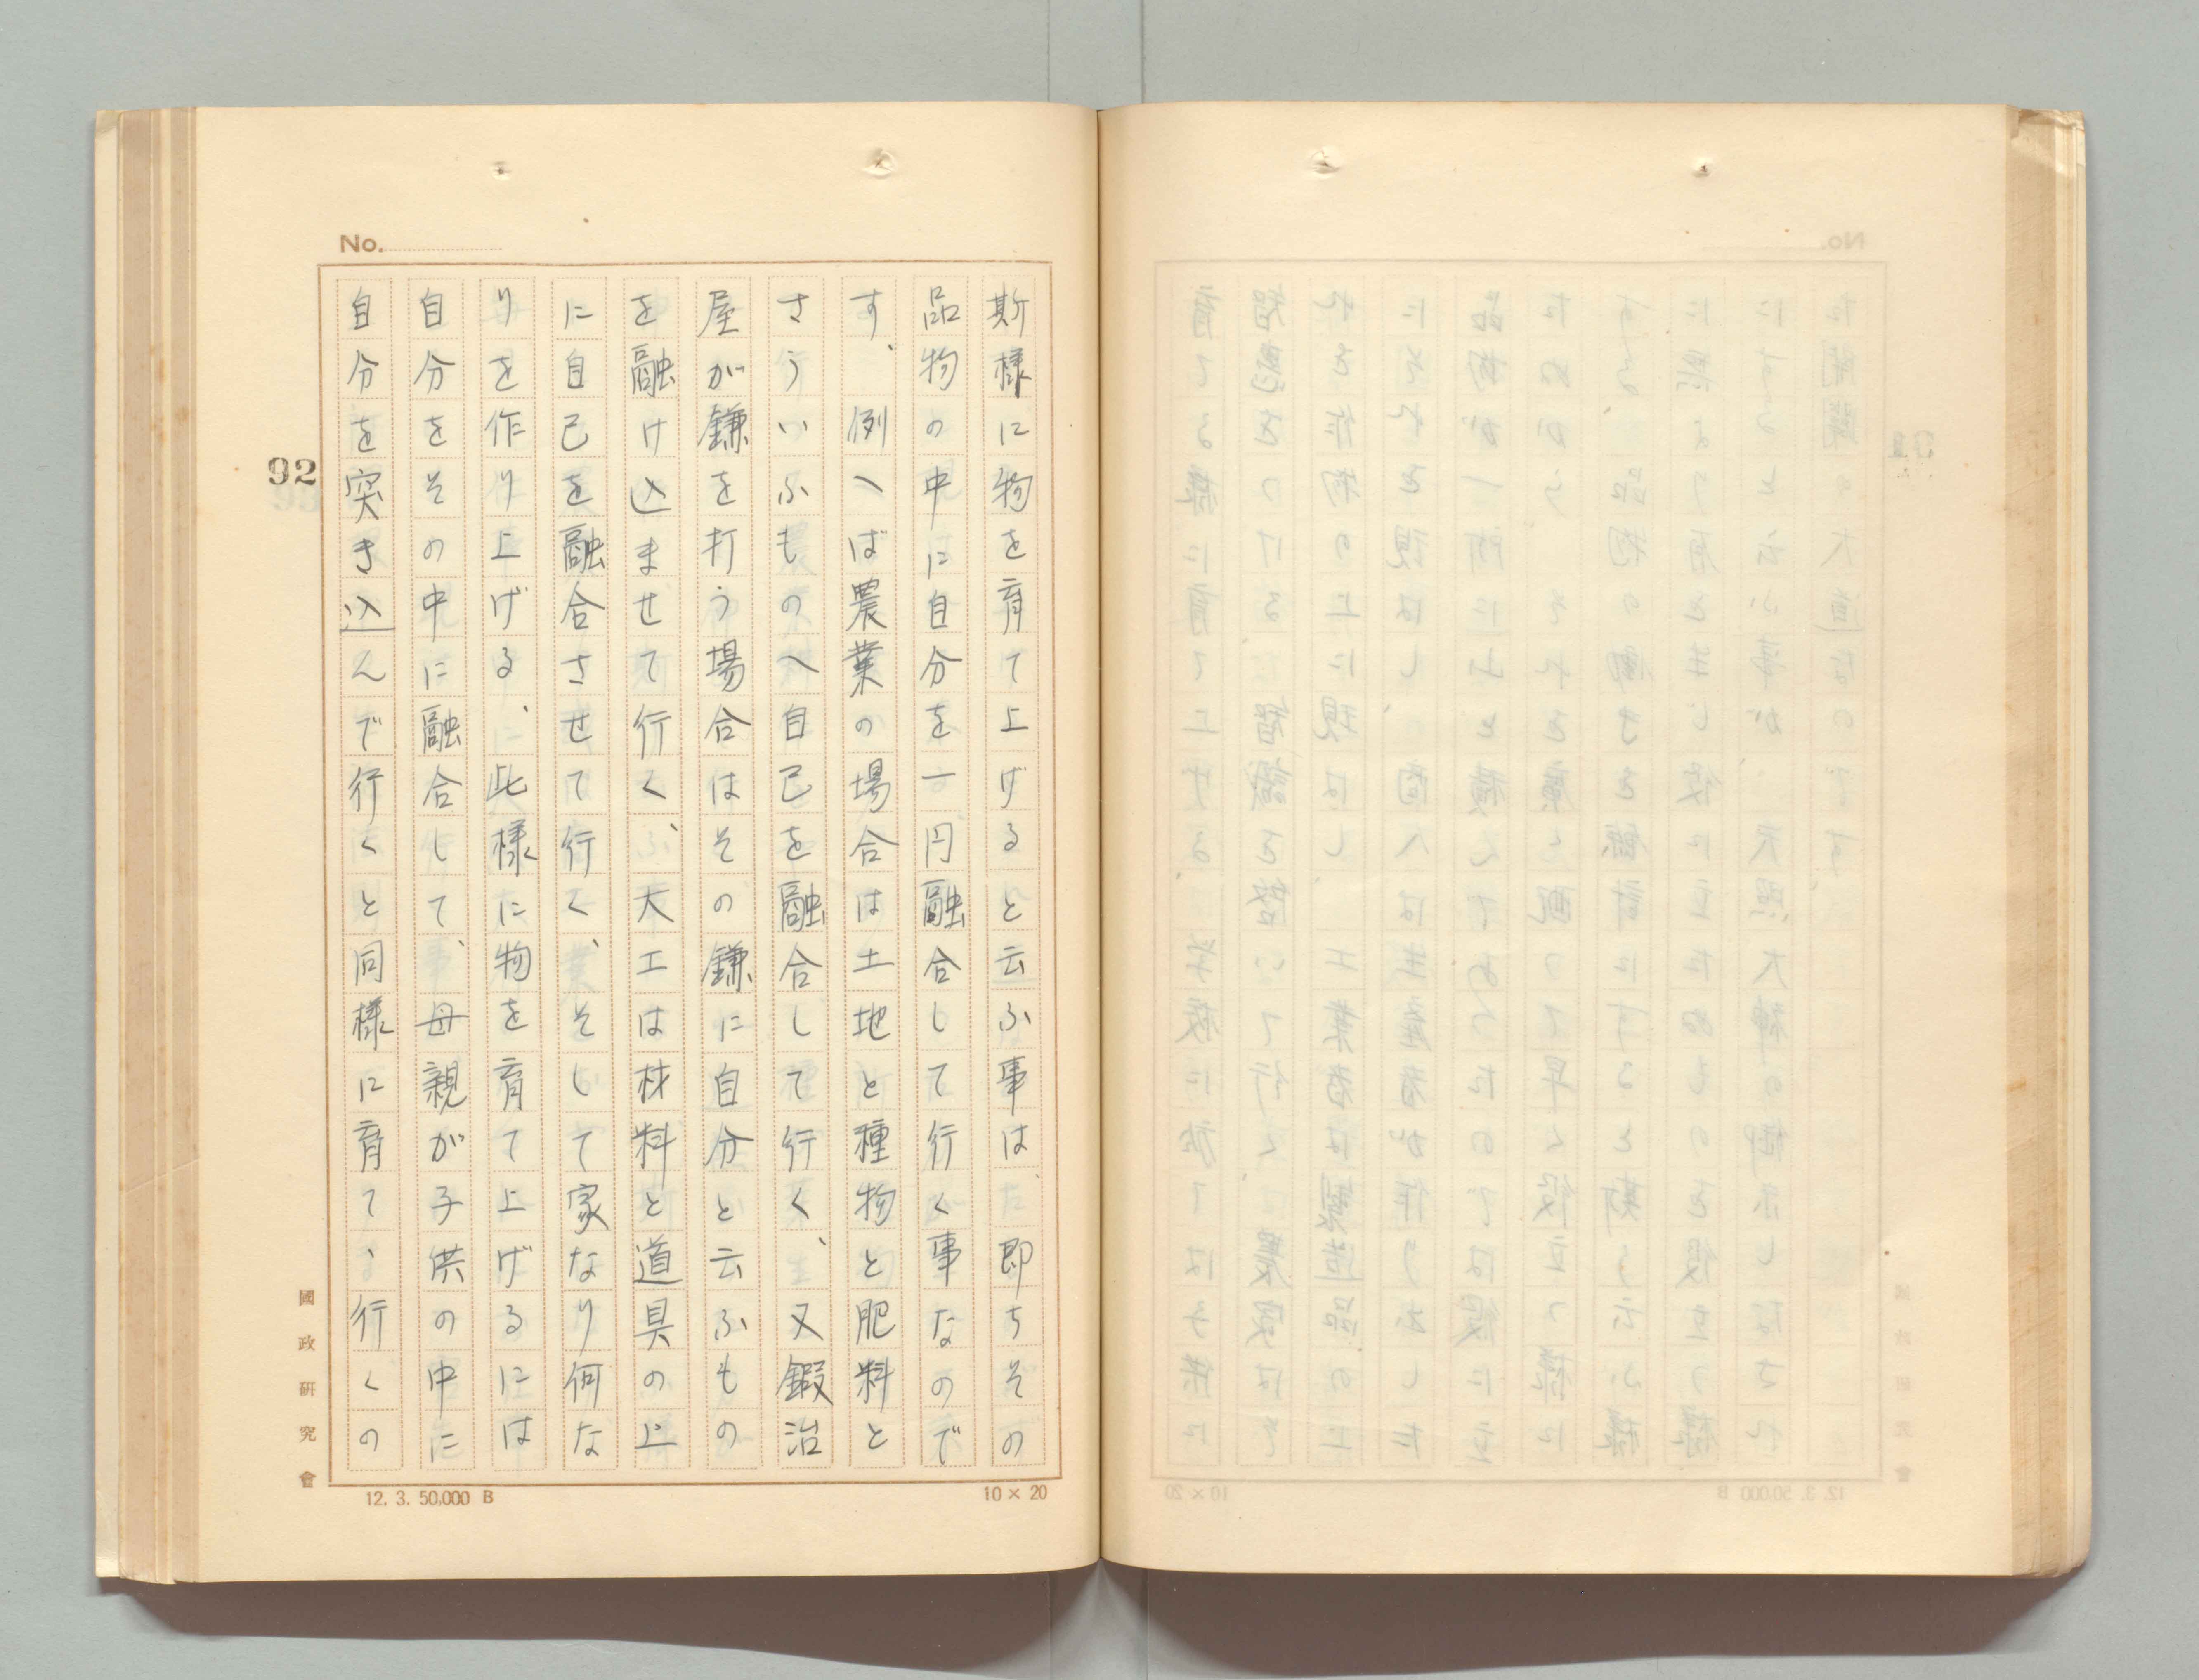 No.
斯様に物を育て上げると云ふ事は、即ちその
品物の中に自分を一円融合して行く事なので
す、例へば農業の場合は土地と種物と肥料と
さういふものへ自己を融合して行く、又鍜治
屋が鎌を打う場合はその鎌に自分と云ふもの
を融け込ませて行く、大工は材料と道具の上
に自己を融合させて行く、そして家なり何な
りを作り上げる、此様に物を育て上げるには
自分をその中に融合して、母親が子供の中に
自分を突き込んで行くと同様に育てゝ行くの
92
國政研究會
12. 3. 50,000 B
10 × 20